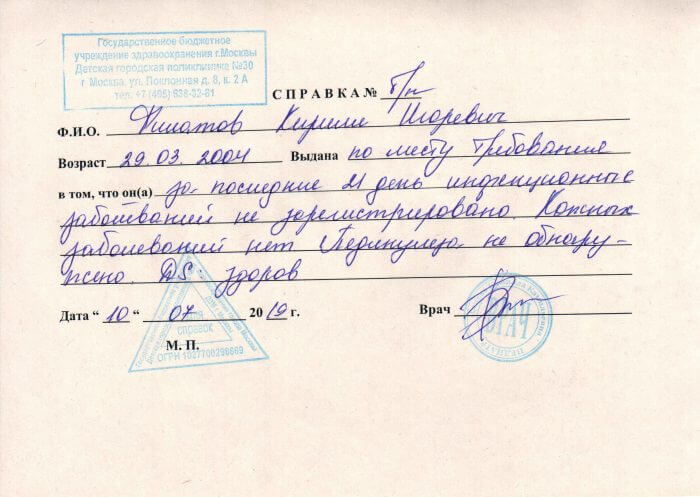 Государственное бюджетное
учреждение здравоохранения г.Москвы
Детская городская поликлиника №30
г Москва, ул. Поклонная д. 8, к. 2 А
тел. +7 (495) 638-32-81
СПРАВКА № б/н
Ф.И.О. Филатов Кирилл Игоревич
Возраст 29.03.2004 Выдана по месту требования
в том, что он(а) за последние 21 день инфекционные
заболеваний не зарегистрировано. Кожных
заболеваний нет Педикулеза не обнару-
жено. DS: здоров
Дата " 10 " 07 2019 г. Врач
М. П.
для
справок
ОГРН 1027700298669
ВРАЧ